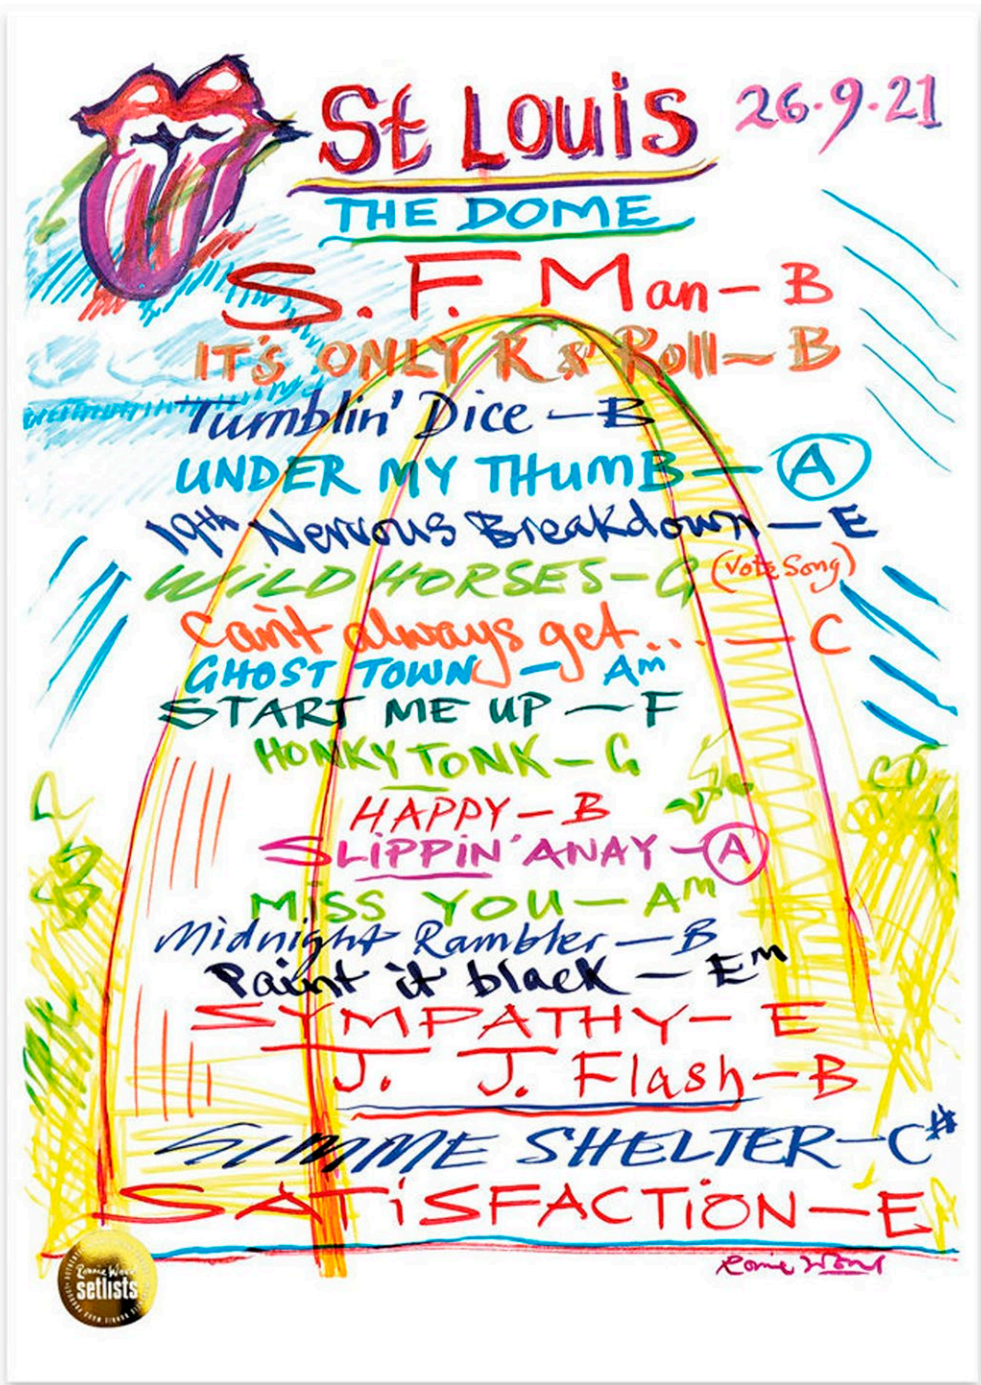 St Louis 26.9.21
THE DOME
S. F. Man - B
IT'S ONLY R & Roll - B
Tumblin' Dice - B
UNDER MY THUMB - A
19th Nervous Breakdown - E
WILD HORSES - G (Vote Song)
Can't always get... - C
GHOST TOWN - Am
START ME UP - F
HONKY TONK - G
HAPPY - B
SLiPPiN' AWAY - A
MiSS YOU - Am
Midnight Rambler - B
Paint it black - Em
SYMPATHY - E
J. J. Flash - B
GIMME SHELTER - C#
SATiSFACTiON - E
Ronnie Wood
Ronnie Wood
setlists